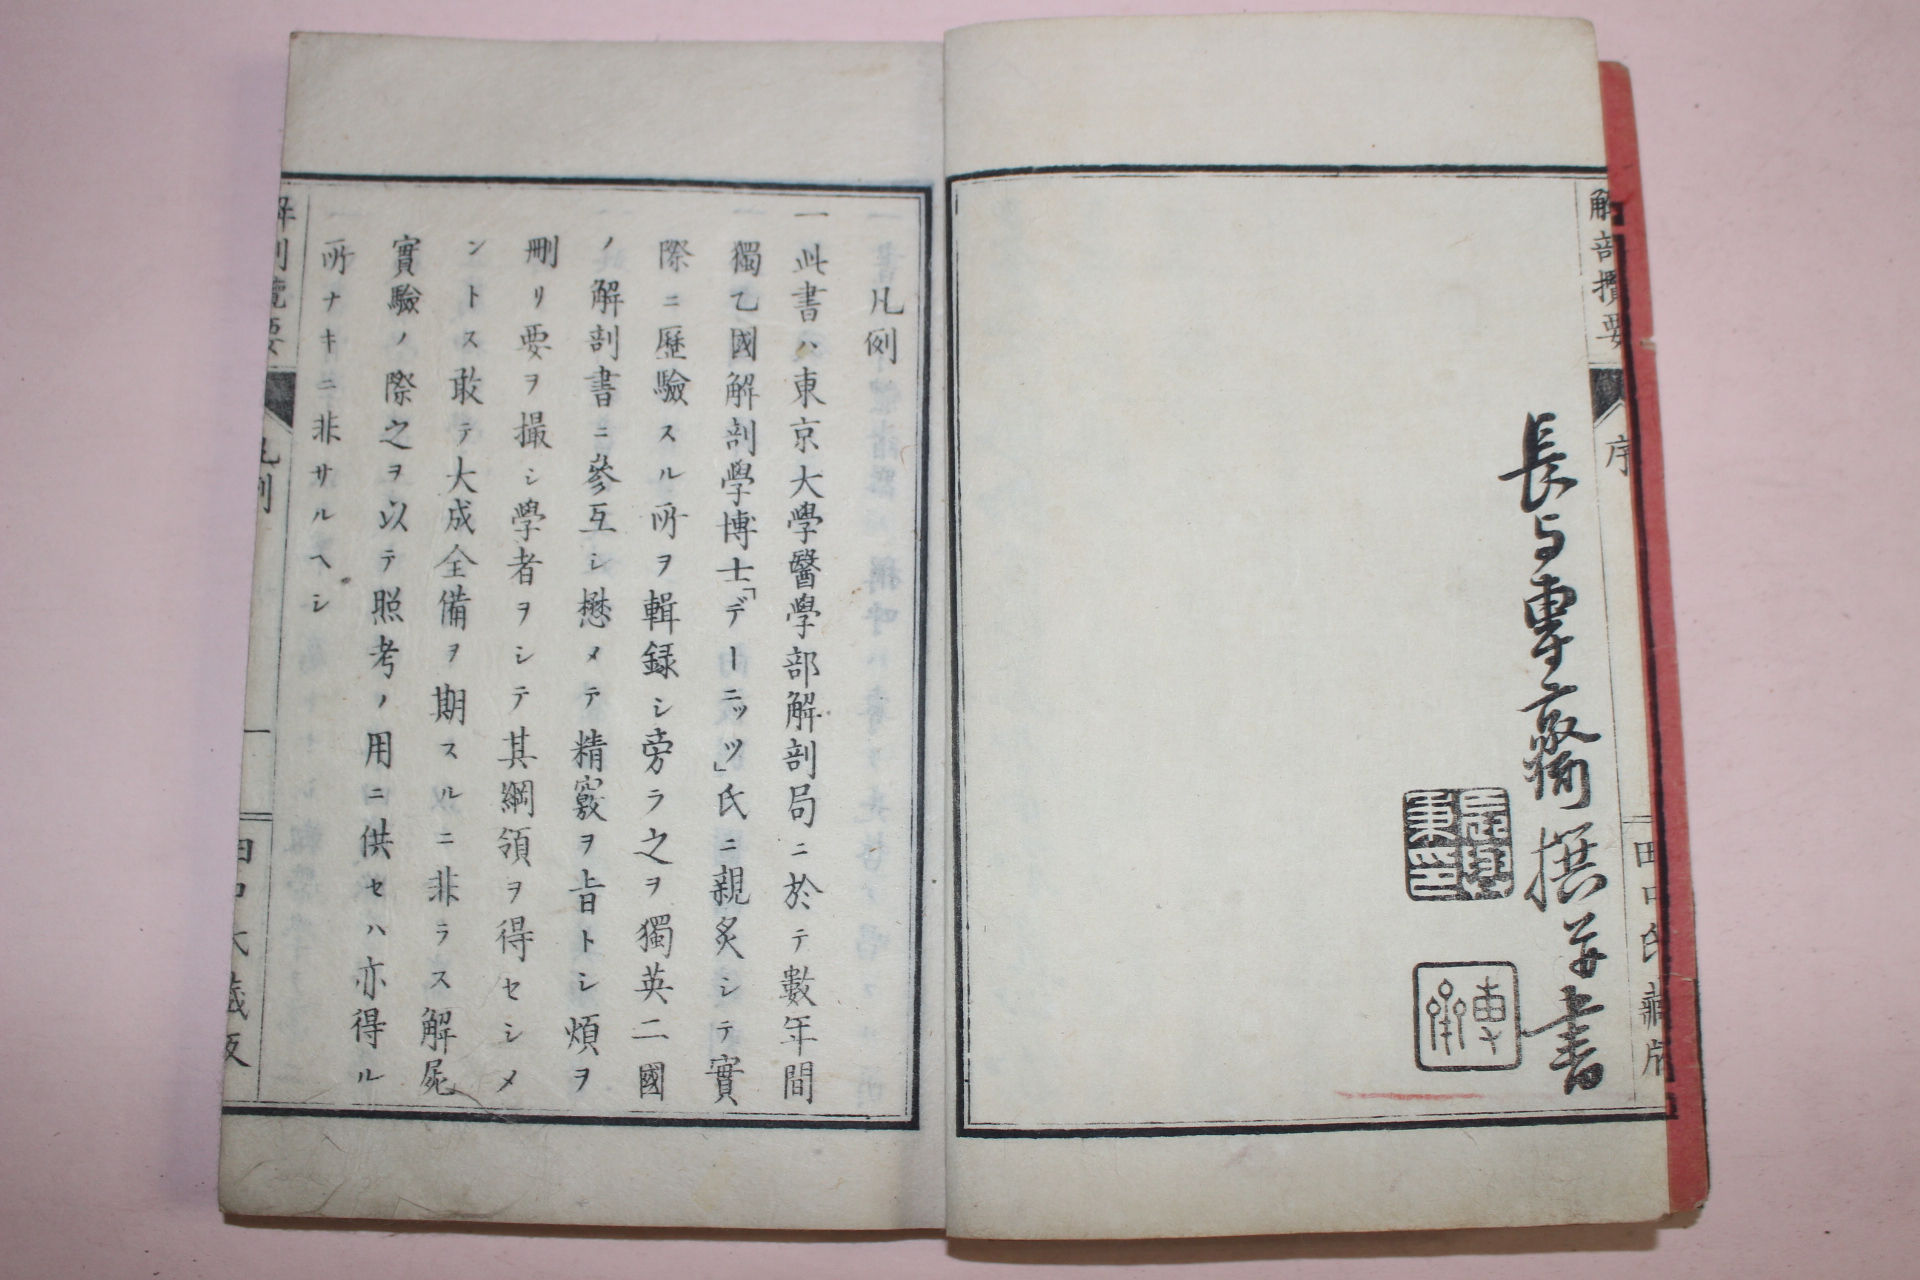 解剖攬要
序
田口氏藏版
長与專齋撰并書
凡例
一此書ハ東京大學醫學部解剖局ニ於テ數年間
獨乙國解剖學博士「デーニッツ」氏ニ親炙シテ實
際ニ歷驗スル所ヲ輯録シ旁ラ之ヲ獨英二國
ノ解剖書ニ參互シ懋メテ精竅ヲ旨トシ煩ヲ
刪リ要ヲ撮シ學者ヲシテ其綱領ヲ得セシメ
ントス敢テ大成全備ヲ期スルニ非ラス解屍
實驗ノ際之ヲ以テ照考ノ用ニ供セハ亦得ル
所ナキニ非サルヘシ
解剖攬要
凡例
一
田口氏藏版